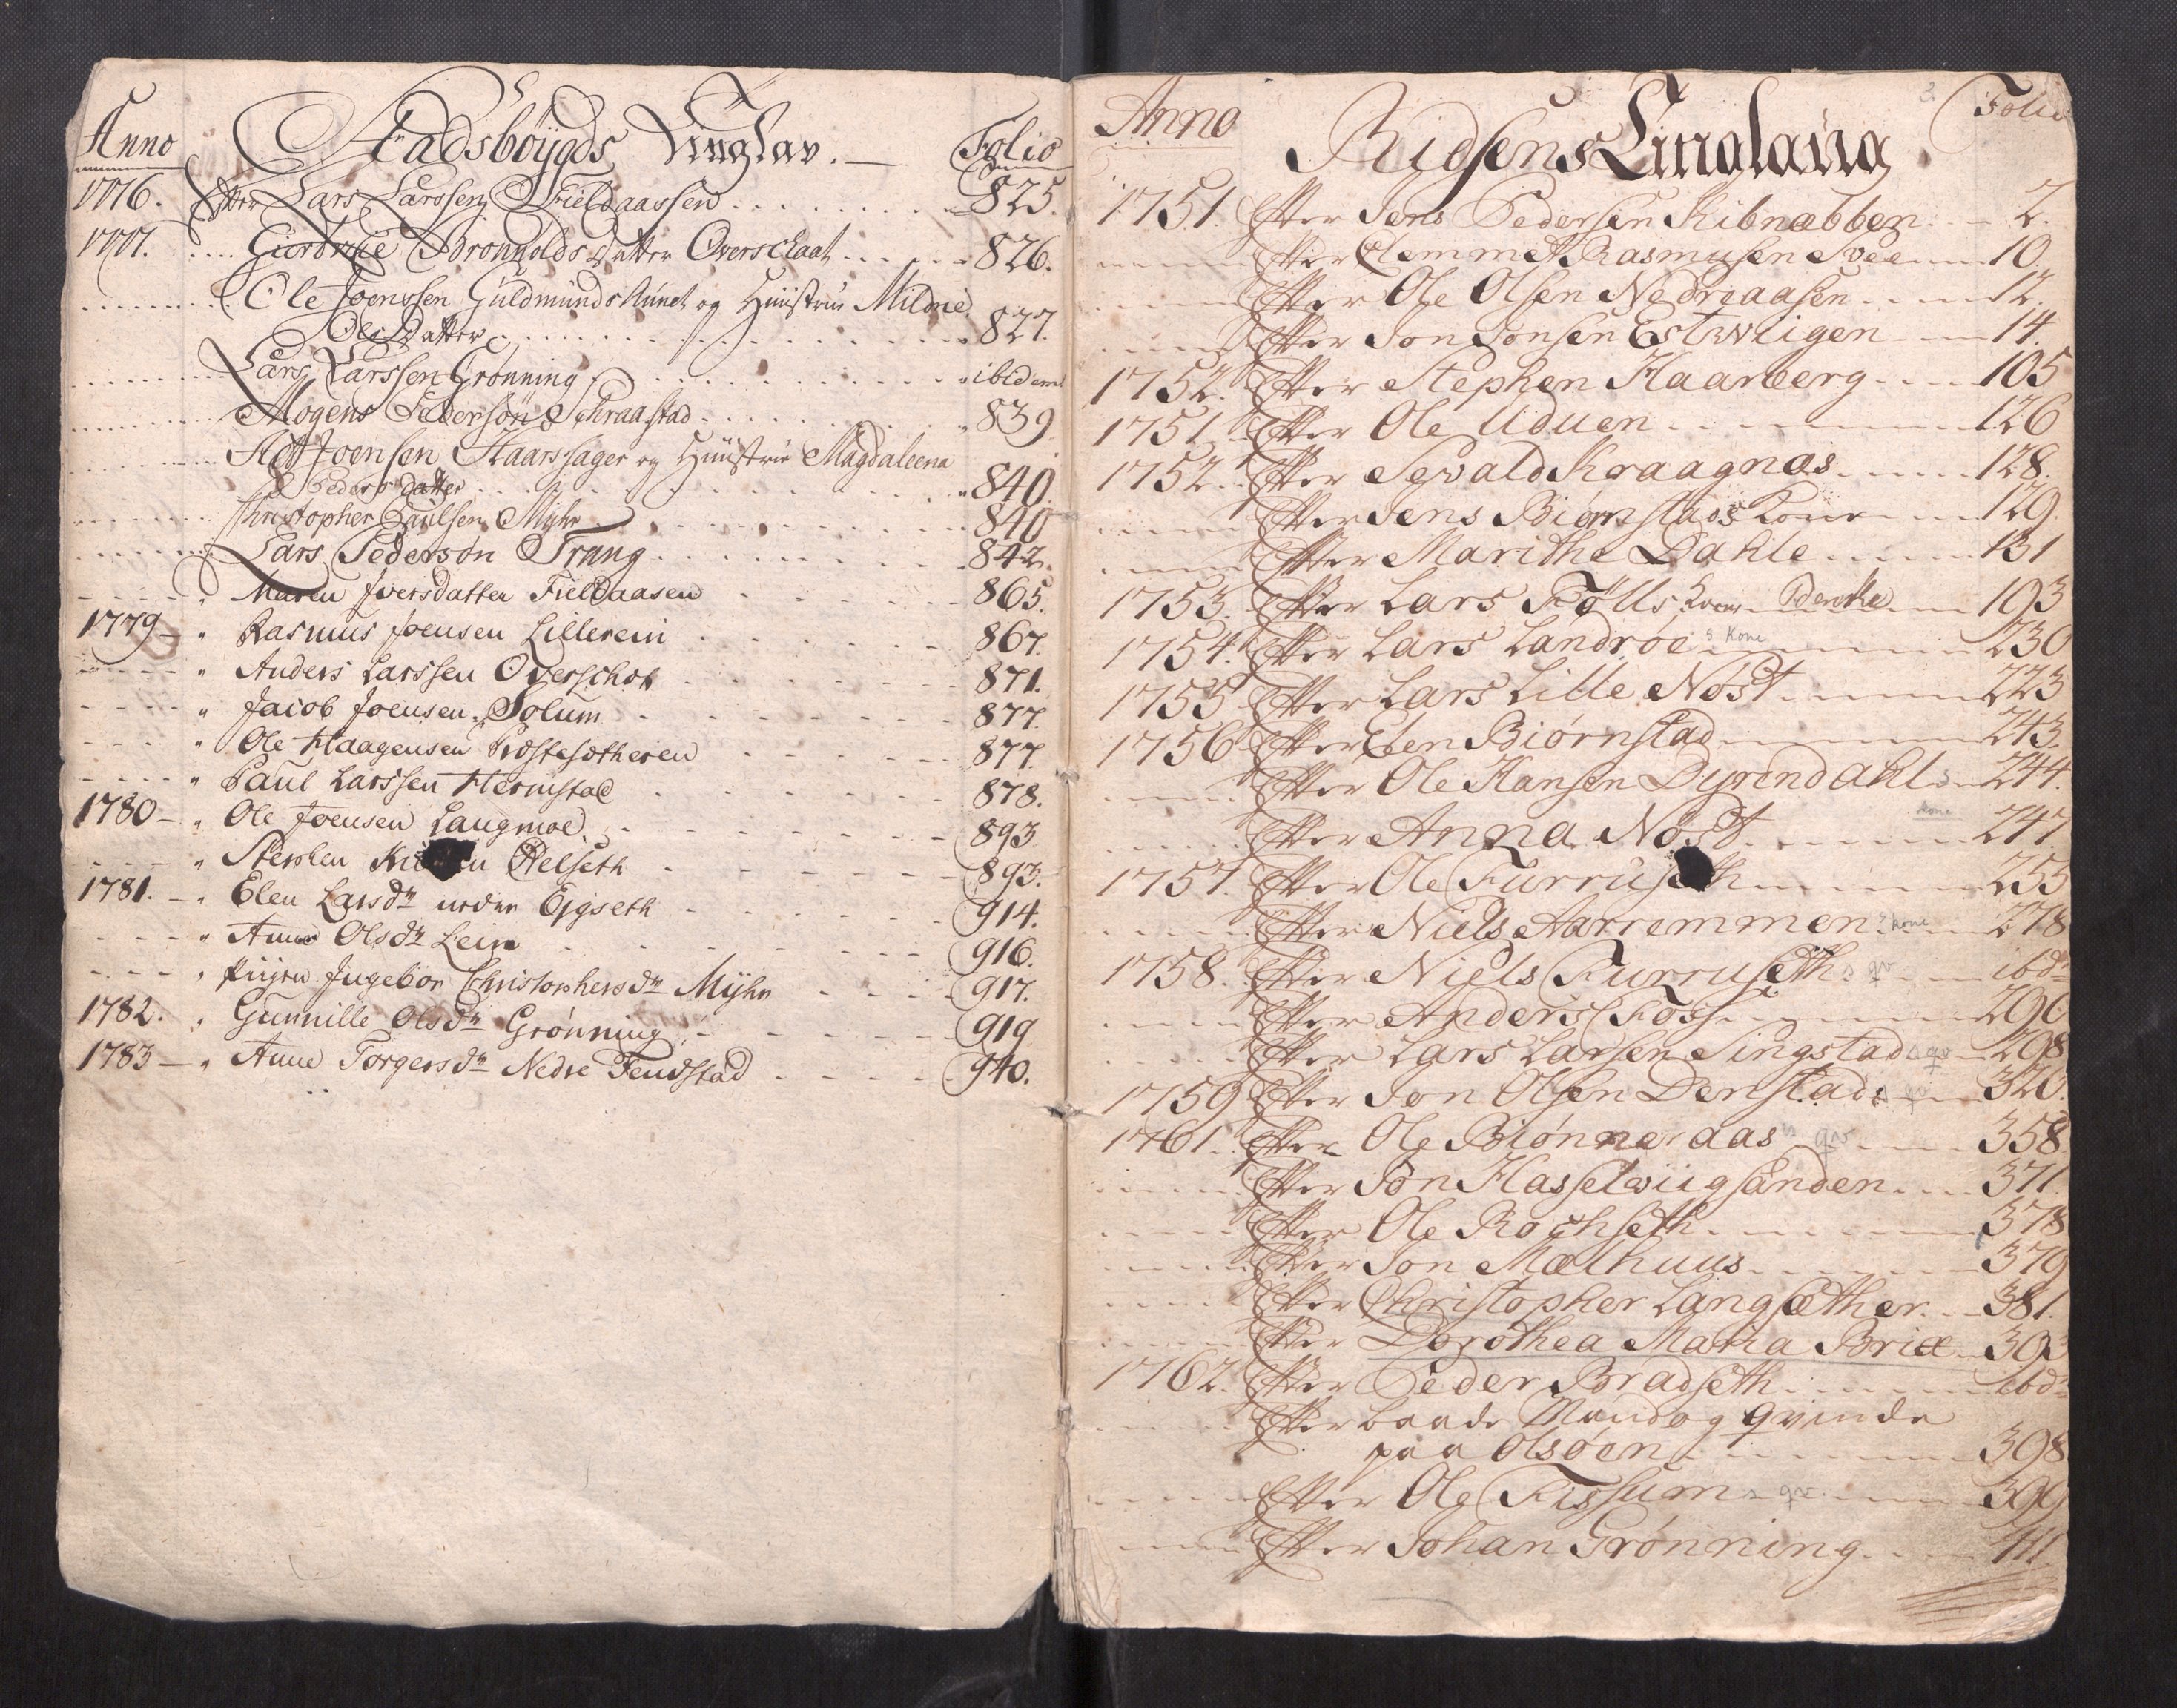 Anno Stadsböygds Tinglav. — Folio
1776. Efter Lars Larssen Fieldaassen 825.
1777. Bronnolds Datter Overschaat 826.
Ole Joenssen Guldmunds Hunet og Hüüstrue Mildrie
Ols Datter 827.
Lars Larssen Grønning ibidem
Mogens Pedersøn Schraastad 839
Joensen Haarssager og Hüüstrue Magdaleena
Peders datter 840.
Christopher Paulsen Myhr 840
Lars Pedersøn Trang 842.
Maren Iversdatter Fieldaasen 865.
1779 — " Rasmus Joensen Lillerein 867.
" Anders Larssen Overschott 871.
" Jacob Joensen Solum 877.
" Ole Haagensen 877.
" Paul Larssen Hermstad 878.
1780 — " Ole Joensen Langmoe 893
" Stephen Relseth 893.
1781. — " Elen Larsdr nedre Ejgseth 914.
" Anne Olsdr Lein 916.
" Piigen Ingebor Christophersdr Myhr 917.
1782. " Gunnille Olsdr Grønning 919
1783 — " Anne Torgersdr Nedre Fendstad 940.
Anno Ridsens Tinglaug Folio
3.
1751. Efter Jens Pedersen Ribnebben 2.
Efter Clemmet Rasmusen Svee 10.
Efter Ole Olsen Nedreaasen 12.
Efter Jon Jonsen Estwiigen 14.
1752. Efter Stephen Haarberg 105
1751. Efter Ole Uduen 126
1752. Efter Sevald Kraagnæs 128.
Efter Jens Biørnstads Kone 129.
Efter Marithe Dahle 131
1753. Efter Lars Fölls Kone Benthe 193
1754. Efter Lars Landrøe s Kone 230
1755 Efter Lars Lille Nöst 223
1756 Efter Elen Biørnstad 243.
Efter Ole Hansen Dyrendahl s 244.
Kone
Efter Anna Nöst 247.
1757. Efter Ole Furruseth 255
Efter Niels Aarremmen s Kone 278
1758. Efter Niels Furruseth s qv ibdm
Efter Anders Foss 296
Efter Lars Larsen Singstad s qv 298
1759 Efter Jon Olsen Denstad s qv 320.
1761. Efter Ole Biønneraas s qv 358
Efter Jon Hasselwiigsanden 371.
Efter Ole Rochseth 378
Efter Jon Mælhuus 379
Efter Christopher Langsæther 381.
Efter Dorothea Maria Brix 393
1762. Efter Peder Bradseth ibdm
Efter baade Mand og qvinde
paa Olsøen 398
Efter Ole Fissum s qv. 399
Efter Johan Grønning 411.